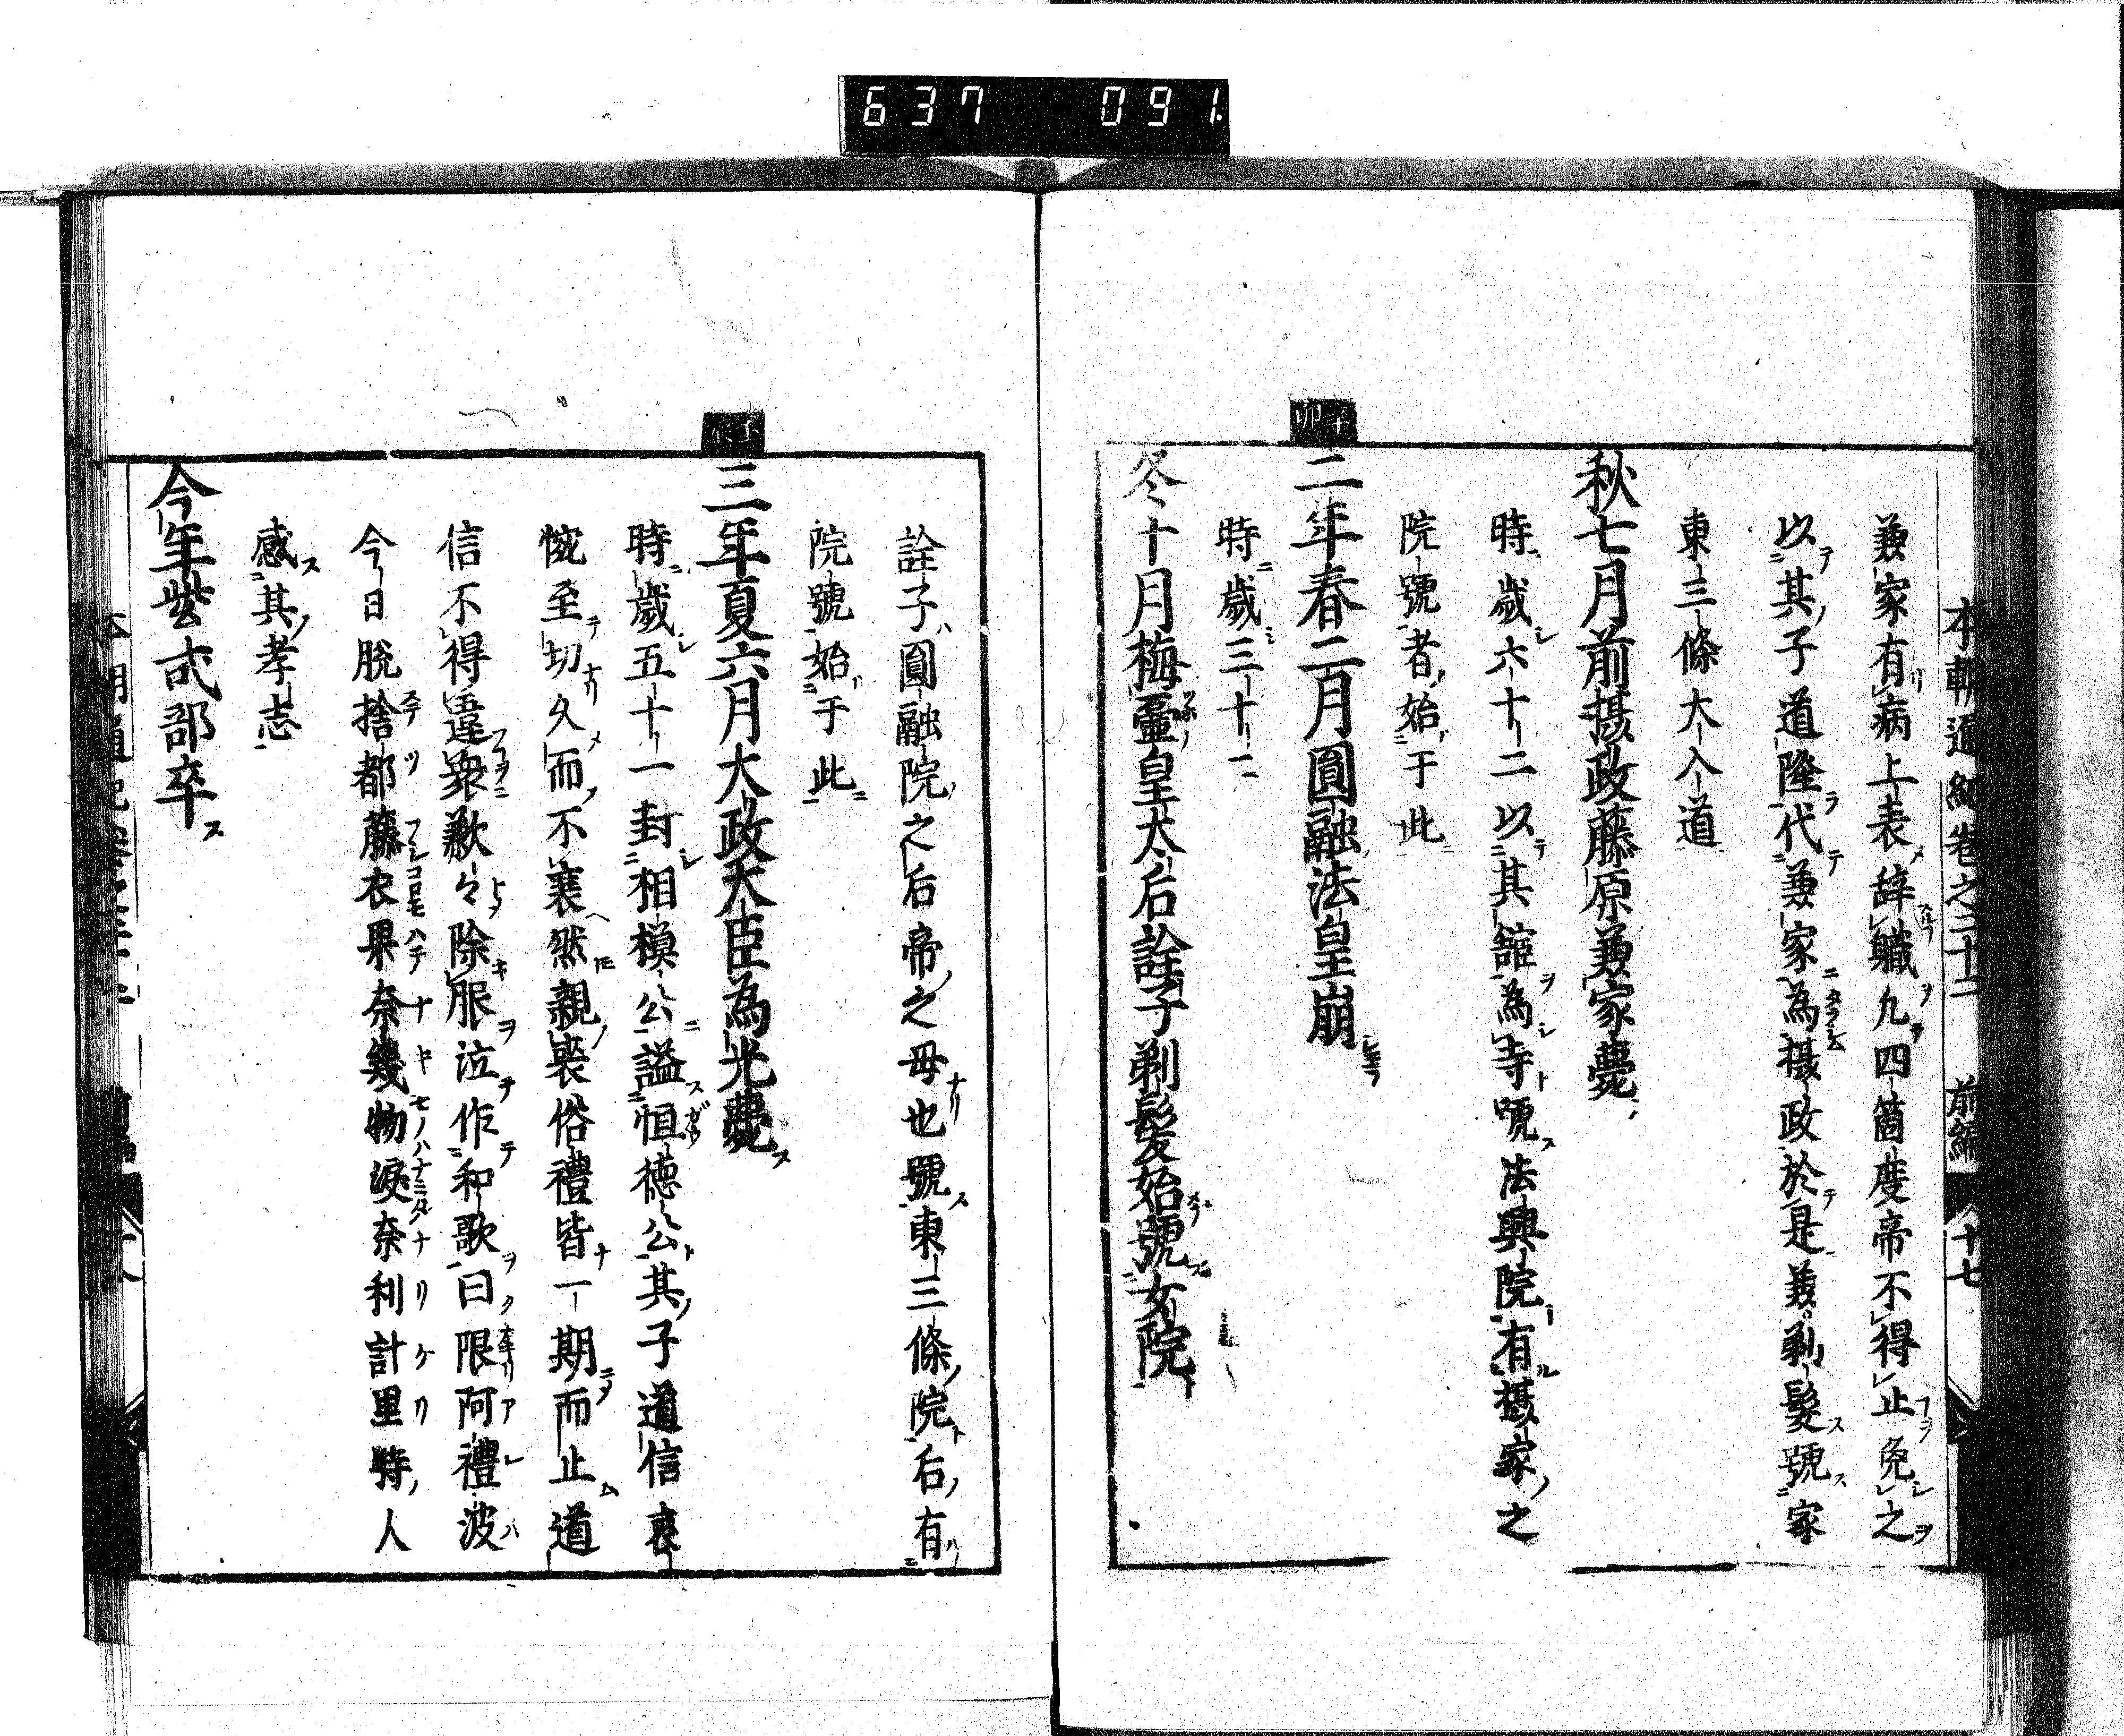 637 091.
本朝通紀巻之二十二 前編 十七
兼家有病上表辞職九四箇度帝不得止免之
以其子道隆代兼家為摂政於是兼家剃髮號家
東三條大入道
秋七月前摂政藤原兼家薨
時歳六十二以其舘為寺號法興院有摂家之
院號者始于此
辛卯
二年春二月圓融法皇崩
時歳三十二
冬十月梅壷皇太后詮子剃髮始號女院
詮子圓融院之后帝之母也號東三條院后有
院號始于此
三年夏六月大政大臣為光薨
時歳五十一封相模公謚恒徳公其子道信哀
惋至切久而不衰然親喪俗禮皆一期而止道
信不得違衆歎々除服泣作和歌曰限阿禮波
今日脱捨都藤衣果奈幾物淚奈利計里時人
感其孝志
今年紫式部卒